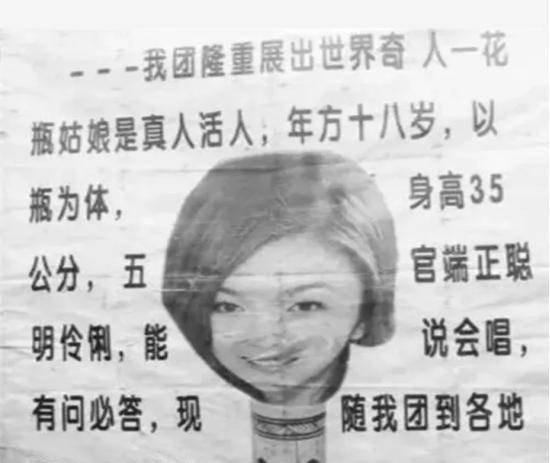 ---我团隆重展出世界奇 人一花
瓶姑娘是真人活人，年方十八岁，以
瓶为体， 身高35
公分，五 官端正聪
明伶俐，能 说会唱，
有问必答，现 随我团到各地